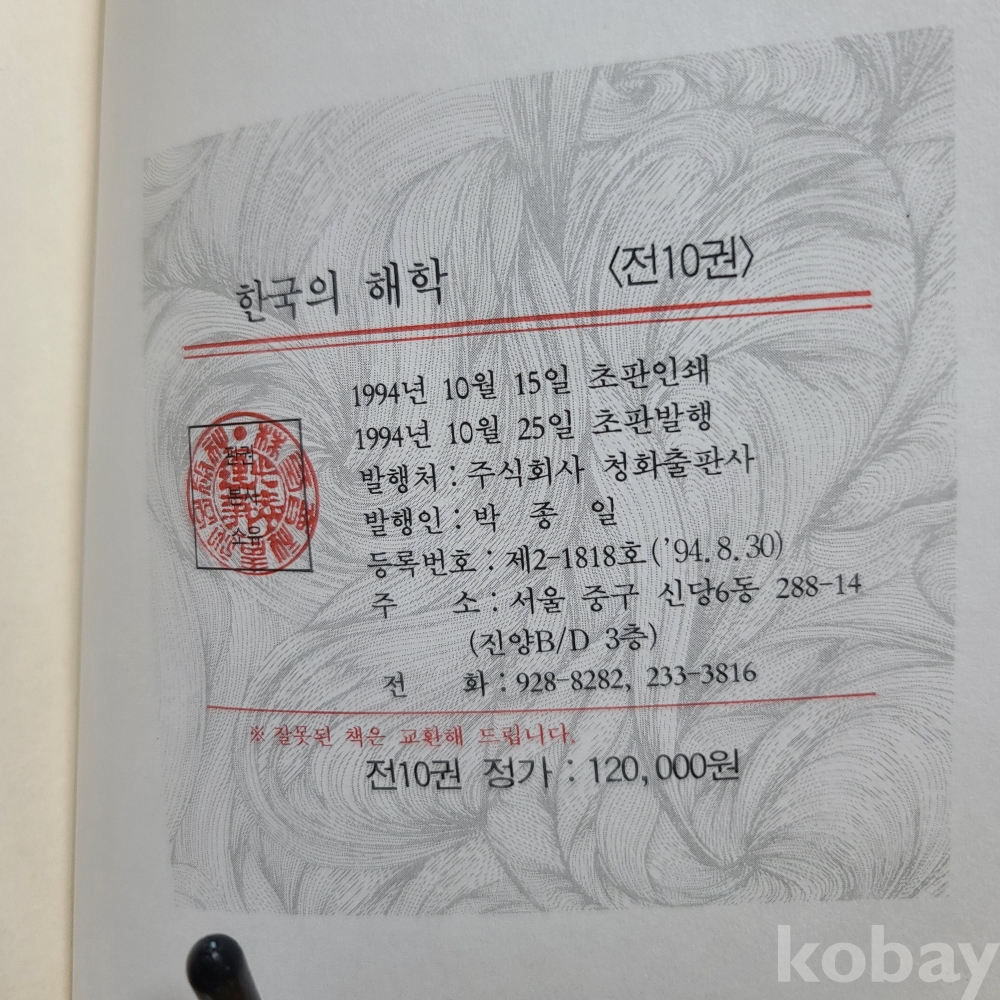 한국의 해학 〈전10권〉
1994년 10월 15일 초판인쇄
1994년 10월 25일 초판발행
발행처 : 주식회사 청화출판사
발행인 : 박 종 일
등록번호 : 제2-1818호 ('94.8.30)
주 소 : 서울 중구 신당6동 288-14
(진양B/D 3층)
전 화 : 928-8282, 233-3816
판권
본사
소유
※ 잘못된 책은 교환해 드립니다.
전10권 정가 : 120,000원
kobay